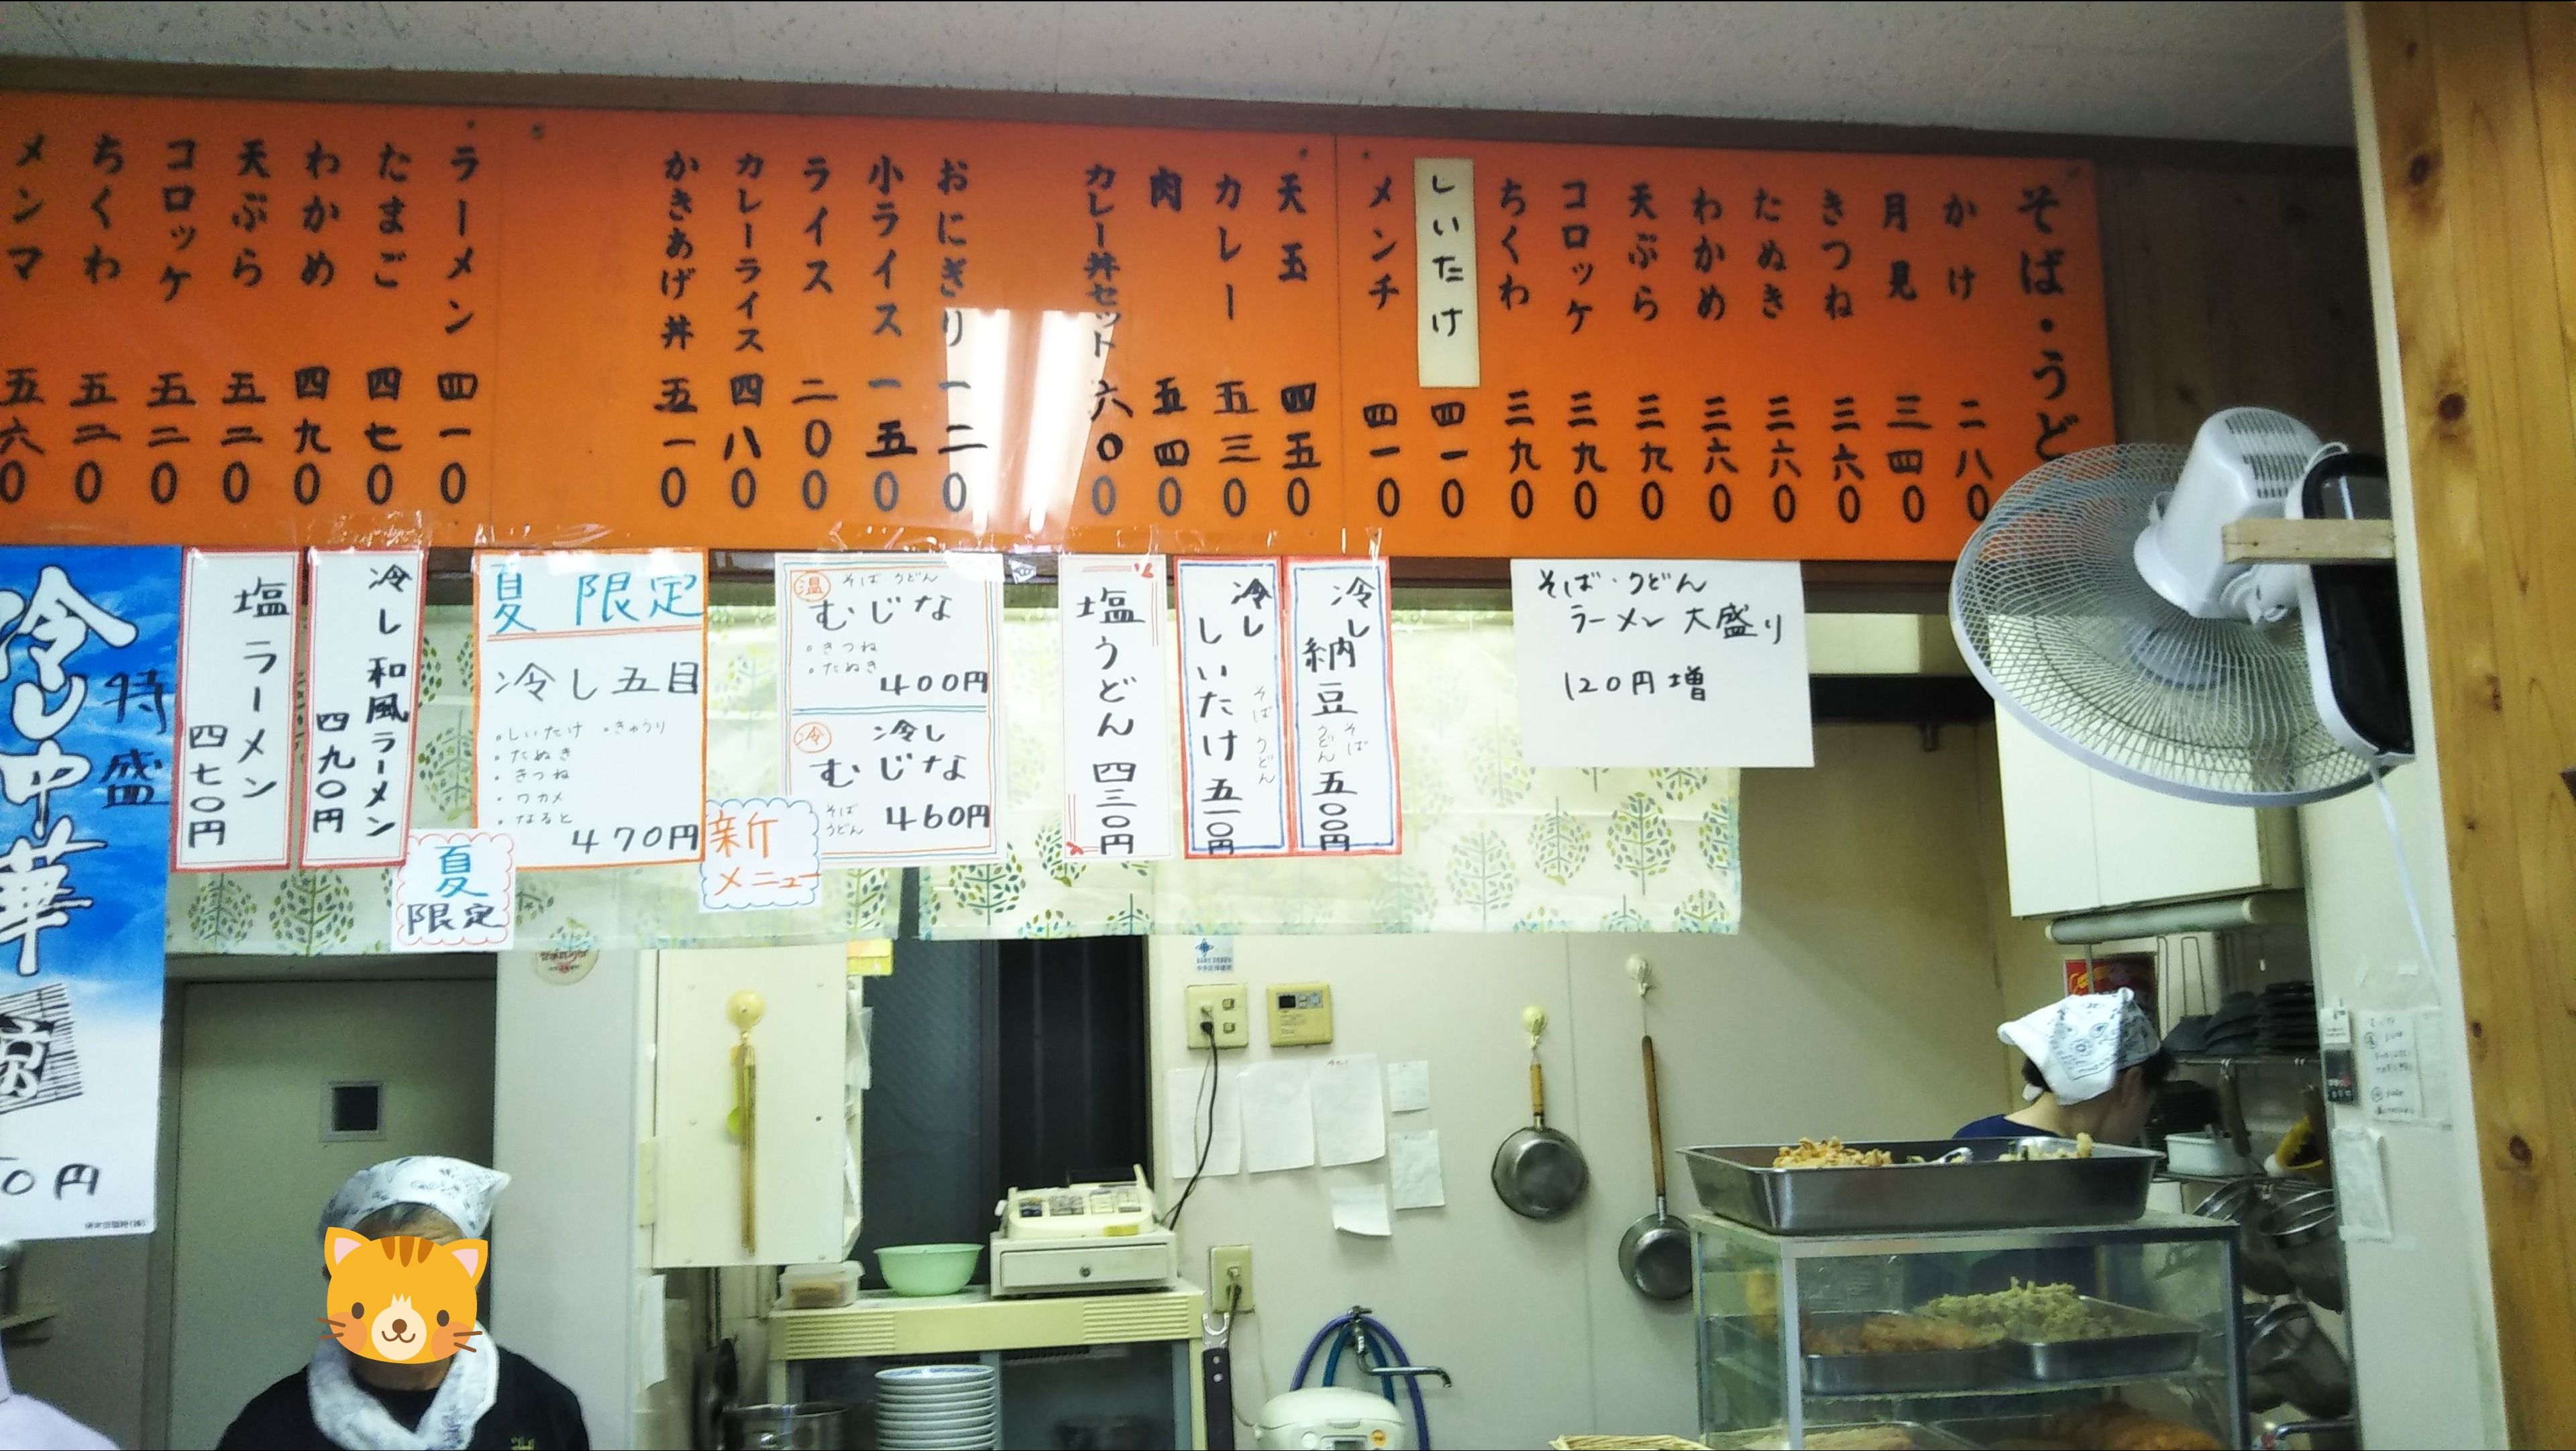 そば・うどん
かけ 二八〇
月見 三四〇
きつね 三六〇
たぬき 三六〇
わかめ 三六〇
天ぷら 三九〇
コロッケ 三九〇
ちくわ 三九〇
しいたけ 四一〇
メンチ 四一〇
天玉 四五〇
カレー 五三〇
肉 五四〇
カレー丼セット 六〇〇
おにぎり 一二〇
小ライス 一五〇
ライス 二〇〇
カレーライス 四八〇
かきあげ丼 五一〇
ラーメン 四一〇
たまご 四七〇
わかめ 四九〇
天ぷら 五二〇
コロッケ 五二〇
ちくわ 五二〇
メンマ 五六〇
そば・うどん
ラーメン 大盛り
120円増
冷し納豆 そば うどん 五〇〇円
冷ししいたけ そば うどん 五一〇円
塩うどん 四三〇円
温 そば うどん
むじな
・きつね
・たぬき
400円
冷 冷し
むじな
そば
うどん
460円
新
メニュー
夏 限定
冷し五目
・しいたけ ・きゅうり
・たぬき
・きつね
・ワカメ
・なると
470円
冷し和風ラーメン
四九〇円
夏
限定
塩ラーメン
四七〇円
特盛
冷し中華
0円